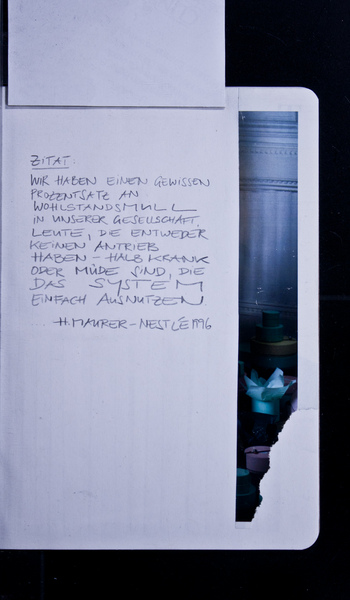 ZITAT.
WIR HABEN EINEN GEWISSEN
PROZENTSATZ AN
WOHLSTANDSMÜLL
IN UNSERER GESELLSCHAFT.
LEUTE, DIE ENTWEDER
KEINEN ANTRIEB
HABEN - HALB KRANK
ODER MÜDE SIND, DIE
DAS SYSTEM
EINFACH AUSNUTZEN.
H. MAURER - NESTLÉ 1996